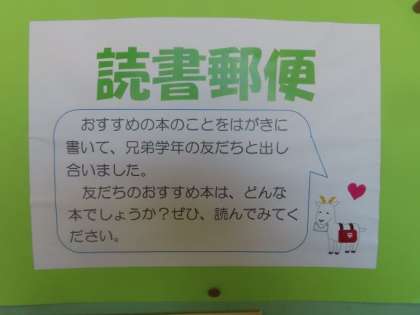 読書郵便
おすすめの本のことをはがきに
書いて、兄弟学年の友だちと出し
合いました。
友だちのおすすめ本は、どんな
本でしょうか？ぜひ、読んでみてく
ださい。